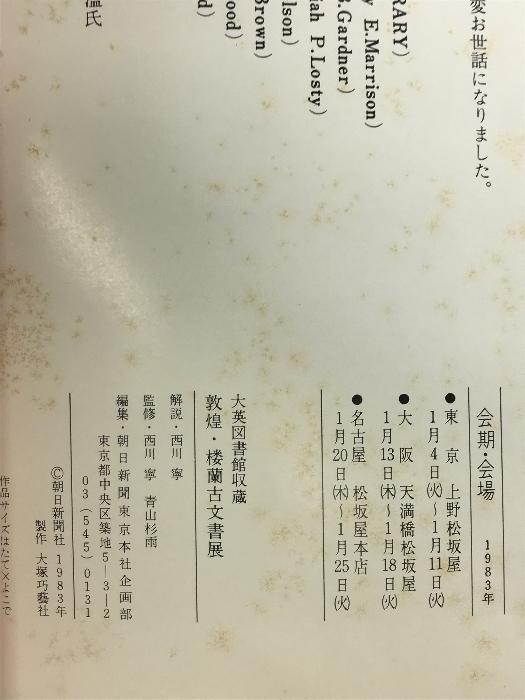 変お世話になりました。
RARY)
y E.Marrison)
B.Gardner)
iah P.Losty)
lson)
Brown)
ood)
d)
温氏
会期・会場 1983年
●東京 上野松坂屋
1月4日(火)～1月11日(火)
●大阪 天満橋松坂屋
1月13日(木)～1月18日(火)
●名古屋 松坂屋本店
1月20日(木)～1月25日(火)
大英図書館収蔵
敦煌・楼蘭古文書展
解説・西川 寧
監修・西川 寧 青山杉雨
編集・朝日新聞東京本社企画部
東京都中央区築地5―3―2
03(545)0131
©朝日新聞社 1983年
製作 大塚巧藝社
作品サイズはたて×よこで